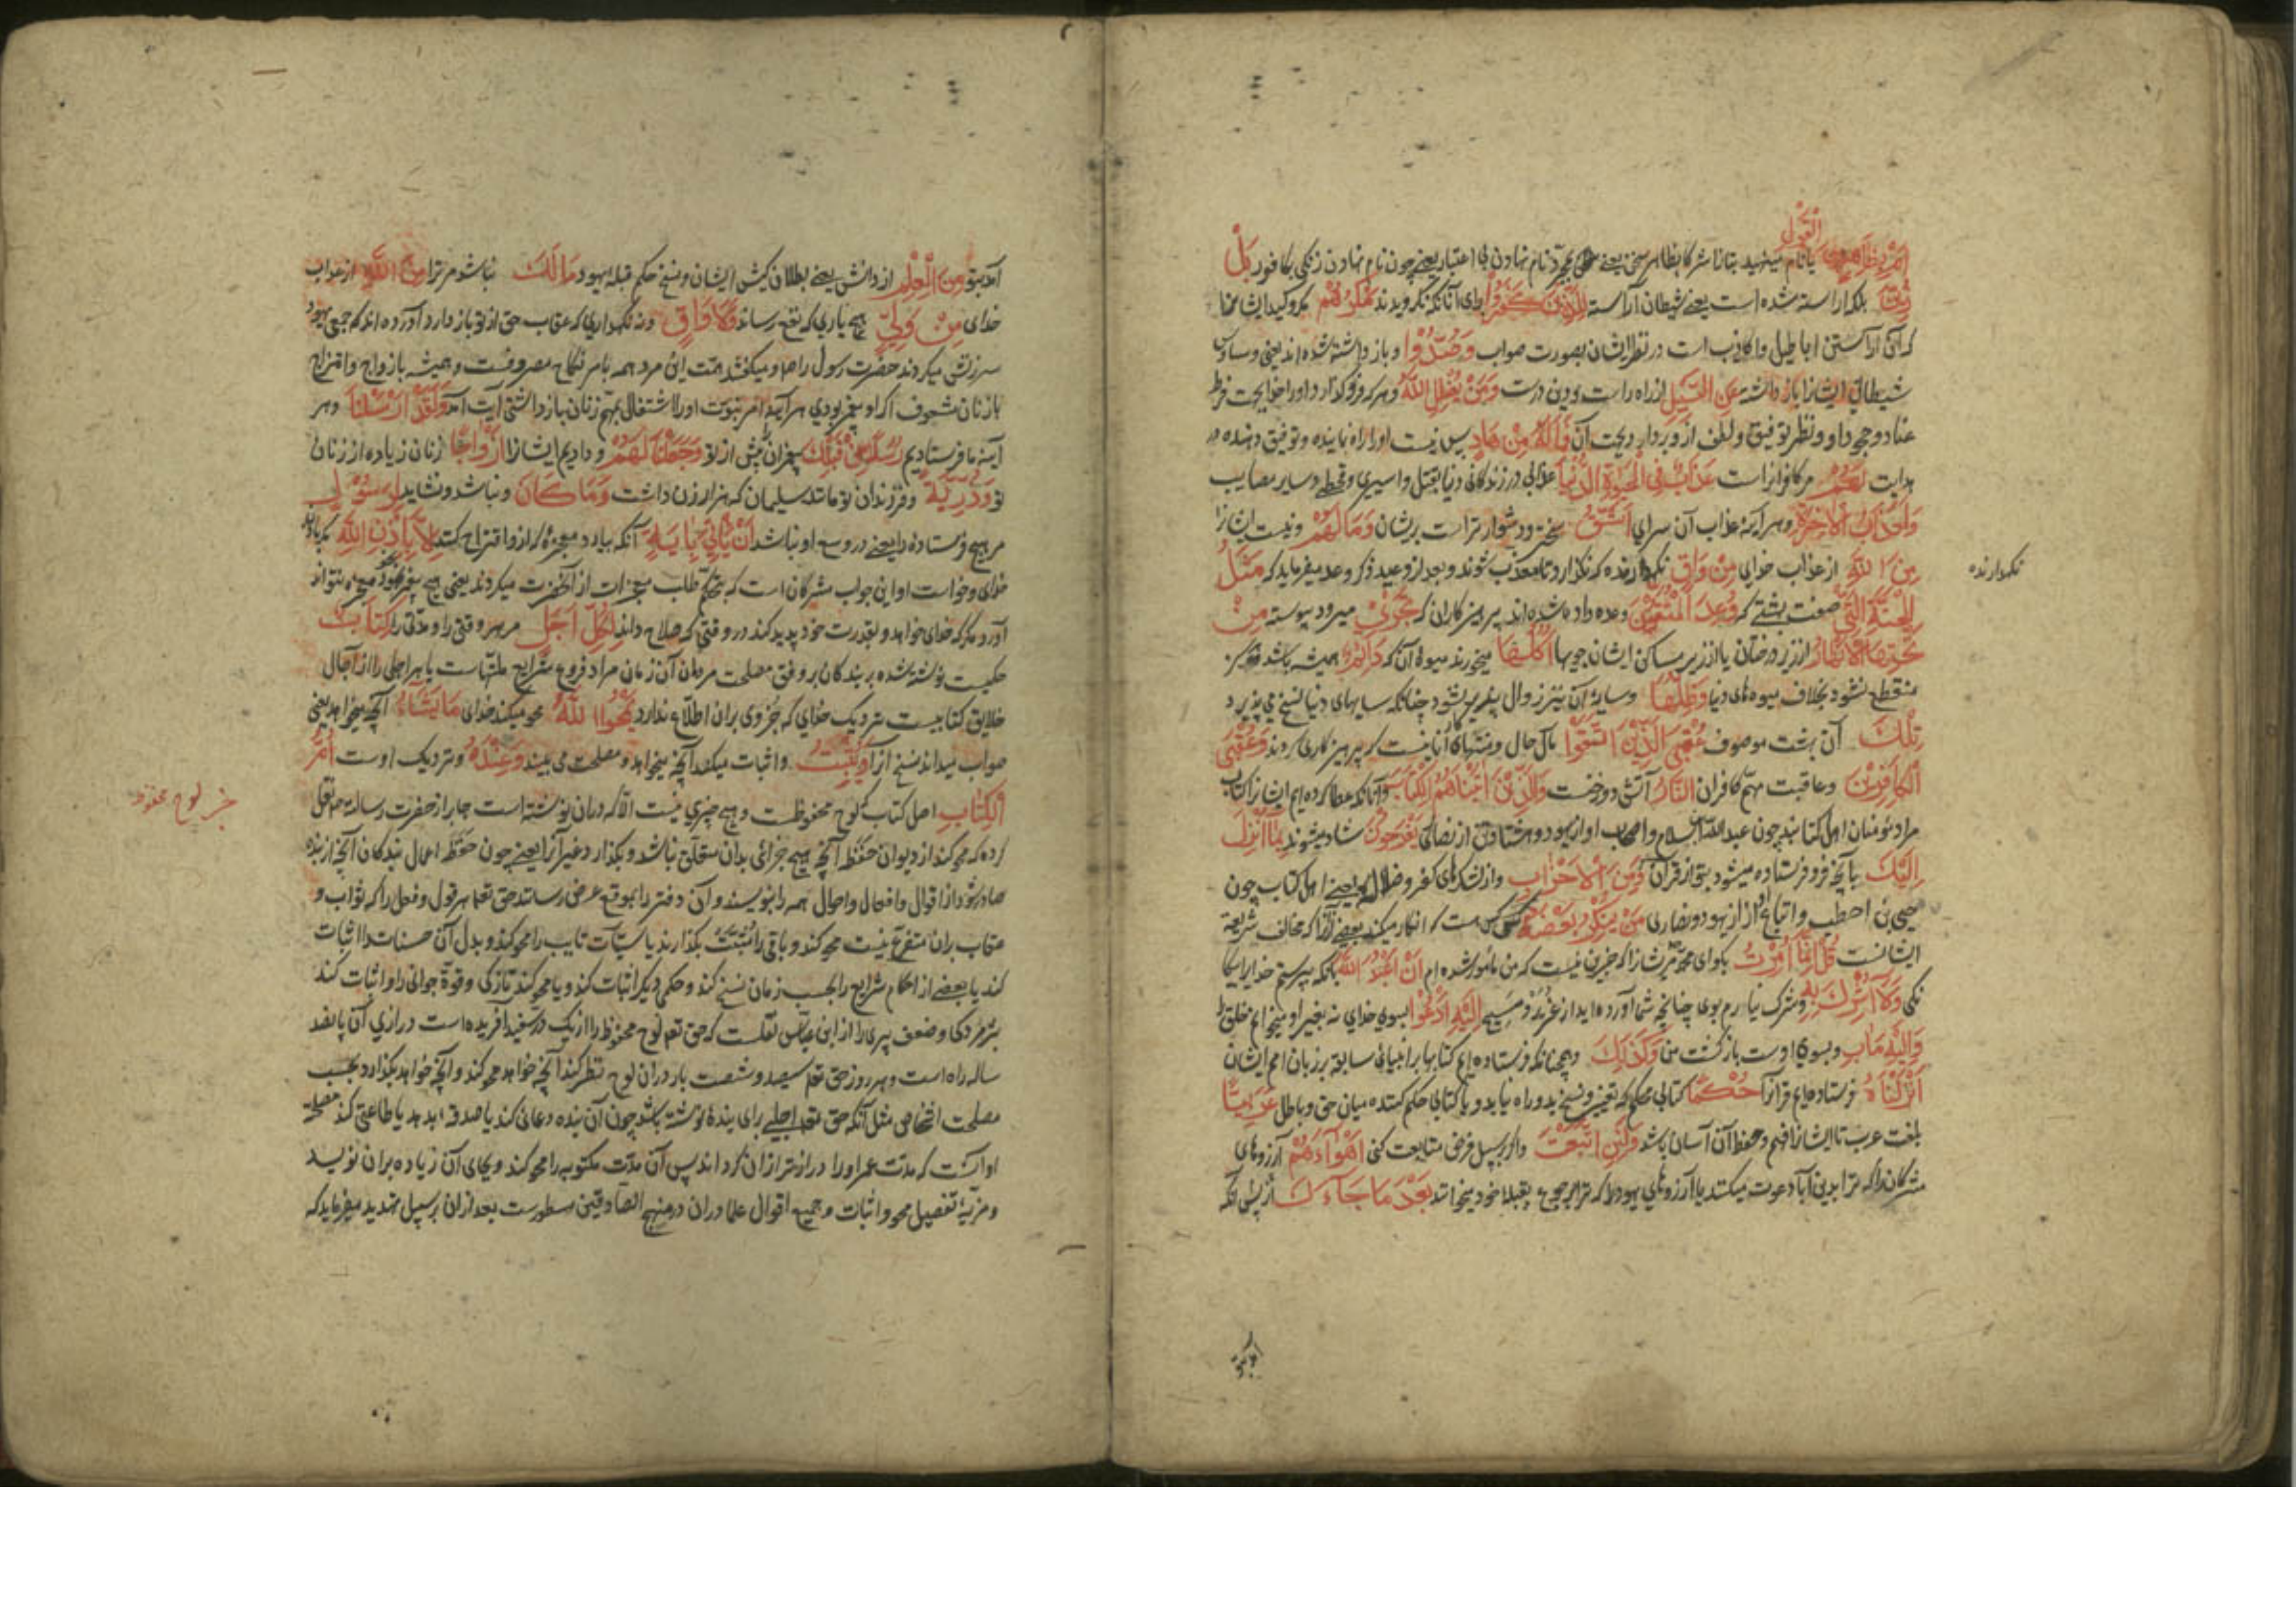 القول
اَمْ بِظَاهِرٍ مِنَ یا نام مینهید بتانرا شرکا بظاهر سخن یعنی بمجرد نام نهادن بی اعتبار یعنی چون نام نهادن زنگی بکافور بَلْ
زُيِّنَ بلکه آراسته شده است یعنی شیطان آراسته لِلَّذِينَ كَفَرُوا برای آنانکه نگرویدند مَكْرُهُمْ مکر و کید ایشانرا
که آن آراستن اباطیل و اکاذیب است در نظر ایشان بصورت صواب وَصُدُّوا و باز داشته شده اند یعنی وساوس
شیطانی ایشانرا باز داشته عَنِ السَّبِيلِ از راه راست و دین درست وَمَنْ يُضْلِلِ اللَّهُ و هر که فرو گذارد او را خدا بجهت فرط
عناد و جحود او و نظر توفیق و لطف از و بردارد بجهت آن فَمَا لَهُ مِنْ هَادٍ پس نیست او را راه نماینده و توفیق دهنده در
هدایت لَهُمْ مر کافرانراست عَذَابٌ فِي الْحَيَوةِ الدُّنْيَا عذابی در زندگانی دنیا بقتل و اسیری و قحط و سایر مصایب
وَلَعَذَابُ الْآخِرَةِ و هر آینه عذاب آن سرای اَشَقُّ سختر و دشوارتر است بریشان وَمَا لَهُمْ و نیست ایشانرا
مِنَ اللَّهِ از عذاب خدای مِنْ وَاقٍ نگهدارنده که نگذارد تا معذب شوند و بعد از وعید ذکر وعد میفرماید که مَثَلُ
نگهدارنده
الْجَنَّةِ الَّتِي صفت بهشتی که وُعِدَ الْمُتَّقُونَ وعده داده شده اند پرهیزکاران که تَجْرِي میرود پیوسته مِنْ
تَحْتِهَا الْاَنْهَارُ از زیر درختان یا از زیر مساکن ایشان جویها اُكُلُهَا میخورند میوه آن که دَائِمٌ همیشه باشد و هرگز
منقطع نشود بخلاف میوه های دنیا وَظِلُّهَا و سایه آن نیز زوال پذیر نشود چنانکه سایهای دنیا نسخ می پذیرد
تِلْكَ آن بهشت موصوف عُقْبَى الَّذِينَ اتَّقَوْا مآل حال و منتهای کار آنانیست که پرهیزکاری کردند وَعُقْبَى
الْكَافِرِينَ و عاقبت مهم کافران النَّارُ آتش دوزخست وَالَّذِينَ آتَيْنَاهُمُ الْكِتَابَ و آنانکه عطا کرده ایم ایشانرا کتاب
مراد مؤمنان اهل کتابند چون عبدالله سلام و اصحاب او از یهود و هشتاد تن از نصاری يَفْرَحُونَ شاد میشوند بِمَا اُنْزِلَ
اِلَيْكَ بآنچه فرو فرستاده میشود بتو از قرآن وَمِنَ الْاَحْزَابِ و از لشکرهای کفر و ضلال یعنی اهل کتاب چون
حیی بن اخطب و اتباع او از یهود و نصاری مَنْ يُنْكِرُ بَعْضَهُ کس هست که انکار میکند بعضی از آنرا که مخالف شریعة
ایشانست قُلْ اِنَّمَا اُمِرْتُ بگو ای محمد مر ایشانرا که جز این نیست که من مامور شده ام اَنْ اَعْبُدَ اللَّهَ بآنکه بپرستم خدایرا بیگا
نگی وَلَا اُشْرِكَ بِهِ و شرک نیارم بوی چنانچه شما آورده اید از عزیر و مسیح اِلَيْهِ اَدْعُوا بسوی خدای نه بغیر او میخوانم خلق را
وَاِلَيْهِ مَآبِ و بسوی اوست بازگشت من وَكَذَلِكَ و همچنانکه فرستاده ایم کتابها بر انبیای سابق بر زبان امم ایشان
اَنْزَلْنَاهُ فرستاده ایم قرآنرا حُكْمًا کتابی محکم که تغییر و نسخ بدو راه نیابد و یا کتابی حکم کننده میان حق و باطل عَرَبِيًّا
بلغت عرب تا ایشانرا فهم و حفظ آن آسان باشد وَلَئِنِ اتَّبَعْتَ و اگر بر سبیل فرض متابعت کنی اَهْوَاءَهُمْ آرزوهای
مشرکانرا که ترا بدین آبا دعوت میکنند یا آرزوهای یهود را که ترا برجوع بقبله خود میخوانند بَعْدَ مَا جَاءَكَ از پس آنکه
آمد بتو
آمد بتو مِنَ الْعِلْمِ از دانش یعنی بطلان کیش ایشان و نسخ حکم قبله یهود مَا لَكَ نباشد مر ترا مِنَ اللَّهِ از عذاب
خدای مِنْ وَلِيٍّ هیچ یاری که نفع رساند وَلَا وَاقٍ و نه نگهداری که عقاب حق از تو باز دارد آورده اند که جمعی یهود
سرزنش میکردند حضرت رسول را صلعم و میگفتند همت این مرد همه بامر نکاح مصروفست و همیشه بازواج و امتزاج
بازنان مشعوف اگر او پیغمبر بودی هر آینه امر نبوت او را از اشتغال بمهم زنان باز داشتی آیت آمد وَلَقَدْ اَرْسَلْنَا و هر
آینه ما فرستادیم رُسُلًا مِنْ قَبْلِكَ پیغمبران پیش از تو وَجَعَلْنَا لَهُمْ و دادیم ایشانرا اَزْوَاجًا زنان زیاده از زنان
تو وَذُرِّيَّةً و فرزندان تو مانند سلیمان که هزار زن داشت وَمَا كَانَ و نباشد و نشاید لِرَسُولٍ
مر هیچ فرستاده را یعنی در وسع او نباشد اَنْ يَاْتِيَ بِآيَةٍ آنکه بیارد معجزه که ازو اقتراح کنند اِلَّا بِاِذْنِ اللَّهِ مگر باذن
خدای و خواست او این جواب مشرکان است که بتحکم طلب معجزات از آنحضرت میکردند یعنی هیچ پیغمبر بخود معجزه نتواند
آورد مگر که خدای خواهد و بقدرت خود پدید کند در وقتی که صلاح داند لِكُلِّ اَجَلٍ مر هر وقتی را و مدتی را كِتَابٌ
حکمیست نوشته شده بر بندگان بر وفق مصلحت مردمان آن زمان مراد فروع شرایع ملتهاست یا هر اجلی را از آجال
خلایق کتابیست نزدیک خدای که جز وی بران اطلاع ندارد يَمْحُوا اللَّهُ محو میکند خدای مَا يَشَاءُ آنچه میخواهد یعنی
صواب میداند نسخ آنرا وَيُثْبِتُ و اثبات میکند آنچه میخواهد و مصلحت می بیند وَعِنْدَهُ و نزدیک اوست اُمُّ
الْكِتَابِ اصل کتاب که لوح محفوظست و هیچ چیزی نیست الا که دران نوشته است جابر از حضرت رسالة نقل
لوح محفوظ
کرده که محو کند از دیوان حفظه آنچه هیچ جزائی بدان متعلق نباشد و بگذارد غیر آنرا یعنی چون حفظه اعمال بندگان آنچه از بنده
صادر شود از اقوال و افعال و احوال همه را بنویسند و آن دفتر را بموقع عرض رسانند حق تعالی هر قول و فعل را که ثواب و
عقاب بران متفرع نیست محو کند و باقی را مثبت بگذارند یا سیئات تایب را محو کند و بدل آن حسنات را اثبات
کند یا بعضی از احکام شرایع را بحسب زمان نسخ کند و حکمی دیگر اثبات کند و یا محو کند تازگی و قوة جوانی را و اثبات کند
پژمردگی و ضعف پیری را از ابن عباس نقلست که حق تعالی لوح محفوظ را از یک در سفید آفریده است درازی آن پانصد
ساله راه است و هر روز حق تعالی سیصد و شصت بار دران لوح نظر کند آنچه خواهد محو کند و آنچه خواهد بگذارد بحسب
مصلحت اشخاص مثل آنکه حق تعالی اجلی برای بنده نوشته باشد چون آن بنده دعائی کند یا صدقه بدهد یا طاعتی کند مصلحة
او آنست که مدت عمر او را درازتر ازان گرداند پس آن مدت مکتوبه را محو کند و بجای آن زیاده بران نویسد
و مزیة تفصیل محو و اثبات و جمیع اقوال علما دران در منهج الصادقین مسطورست بعد ازان بر سبیل تهدید میفرماید که